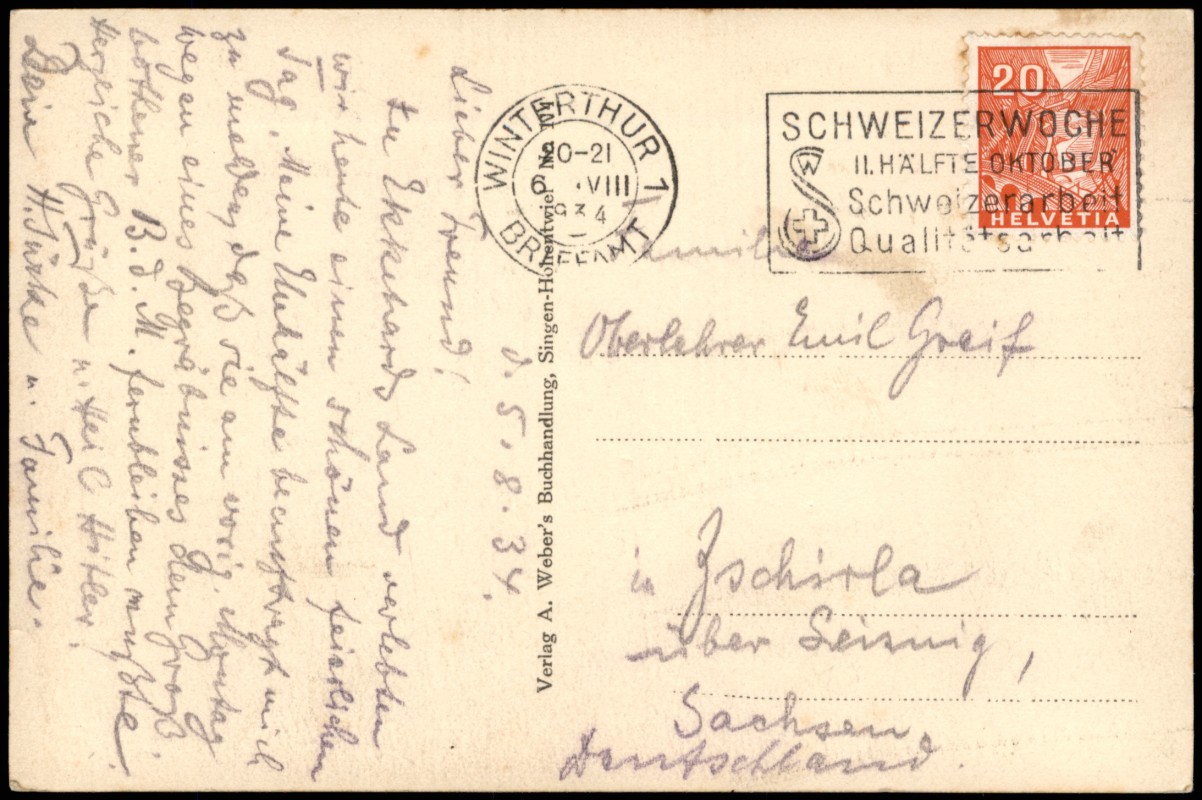 d. 5.8.34.
Lieber Freund!
In Ekkehards Land verlebten
wir heute einen schönen feierlichen
Tag. Meine Ehehälfte beauftragt mich
zu melden, daß sie am vorig. Montag
wegen eines Begräbnisses dem Groß-
bothener B.d.M. fernbleiben mußte.
Herzliche Grüße u. Heil Hitler!
Dein H. Türke u. Familie.
Verlag A. Weber's Buchhandlung, Singen-Hohentwiel No
WINTERTHUR 1
20-21
6. VIII
1934
BRIEFAMT
SCHWEIZERWOCHE
II. HÄLFTE OKTOBER
Schweizerarbeit
Qualitätsarbeit
SW
20
HELVETIA
Familie
Oberlehrer Emil Greif
in Zschirla
über Leisnig,
Sachsen.
Deutschland.